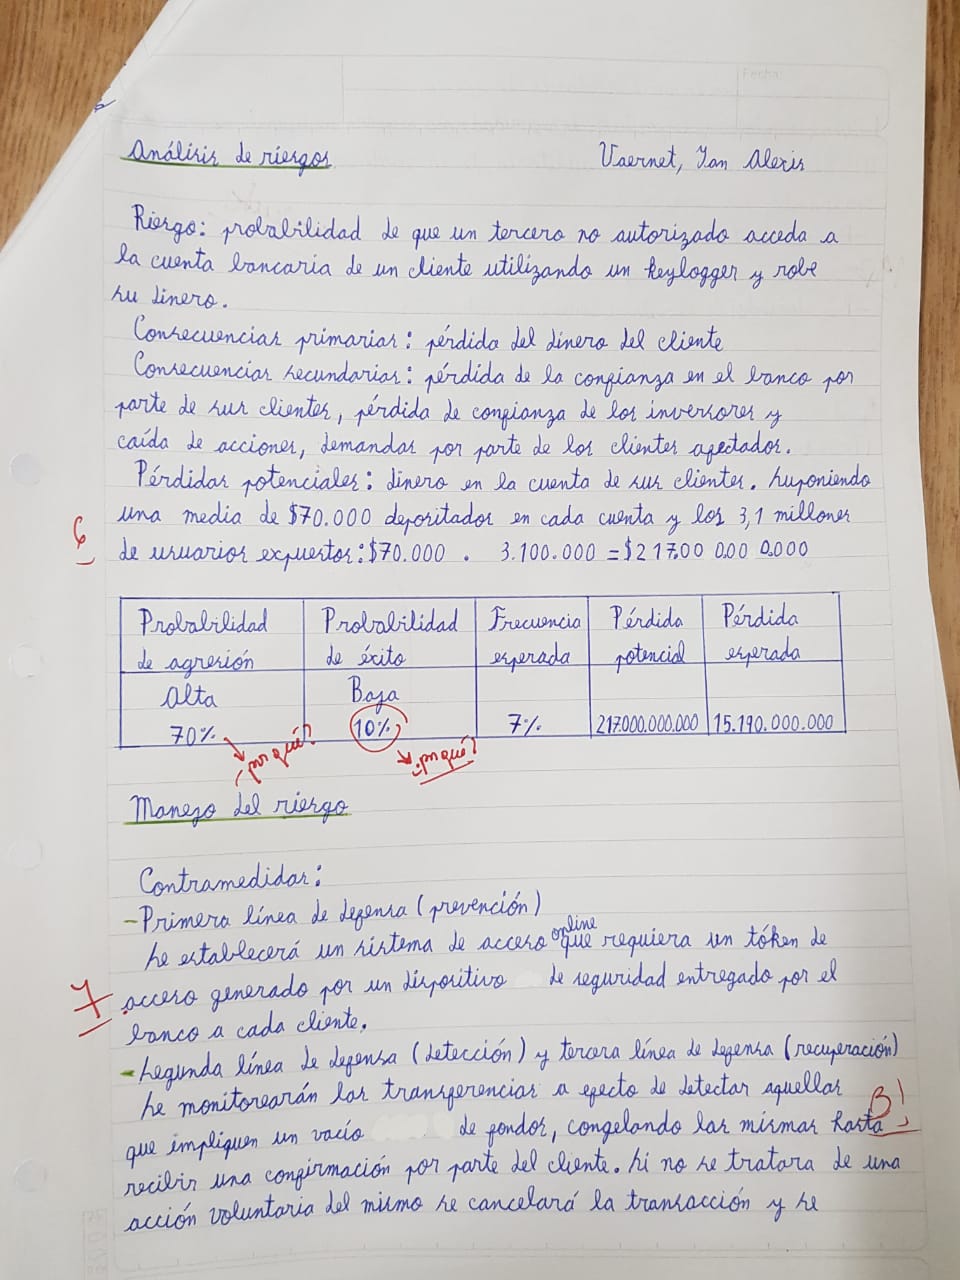 Fecha:
Análisis de riesgos
Vaernet, Ian Alexis
Riesgo: probabilidad de que un tercero no autorizado acceda a
la cuenta bancaria de un cliente utilizando un keylogger y robe
su dinero.
Consecuencias primarias: pérdida del dinero del cliente
Consecuencias secundarias: pérdida de la confianza en el banco por
parte de sus clientes, pérdida de confianza de los inversores y
caída de acciones, demandas por parte de los clientes afectados.
Pérdidas potenciales: dinero en la cuenta de sus clientes. Suponiendo
una media de $70.000 depositados en cada cuenta y los 3,1 millones
6
de usuarios expuestos: $70.000 . 3.100.000 = $217.000.000.000
Probabilidad de agresión
Probabilidad de éxito
Frecuencia esperada
Pérdida potencial
Pérdida esperada
Alta 70%
Baja 10%
7%
217.000.000.000
15.190.000.000
¿por qué?
¿por qué?
Manejo del riesgo
Contramedidas:
- Primera línea de defensa (prevención)
Se establecerá un sistema de acceso online que requiera un tóken de
7
acceso generado por un dispositivo de seguridad entregado por el
banco a cada cliente.
- Segunda línea de defensa (detección) y tercera línea de defensa (recuperación)
Se monitorearán las transferencias a efecto de detectar aquellas
B!
que impliquen un vacío de fondos, congelando las mismas hasta
recibir una confirmación por parte del cliente. Si no se tratara de una
acción voluntaria del mismo se cancelará la transacción y se